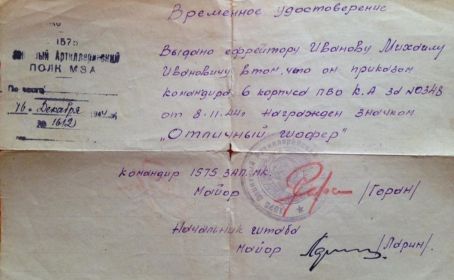 Временное удостоверение
1575
Артиллерийский
ПОЛК МЗА
16 Декабря 194
№ 1612
Выдано ефрейтору Иванову Михаилу
Ивановичу в том, что он приказом
командира 6 корпуса ПВО К.А за №0348
от 8.11.44г награжден значком
„Отличный шофер"
Командир 1575 ЗАП. МК.
Майор /Горан/
Начальник штаба
Майор /Ларин/